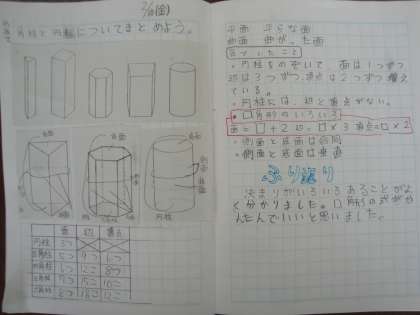 2/10(金)
角柱と円柱についてまとめよう。
底面
側面
底面
円柱
面 辺 頂点
円柱 3つ
三角柱 5つ 9つ 6つ
四角柱 6つ 12こ 8つ
五角柱 7つ 15こ 10こ
六角柱 8つ 18こ 12こ
平面 平らな面
曲面 曲がった面
気づいたこと
・円柱をのぞいて 面は1つずつ
辺は3つずつ、頂点は2つずつ増え
ている。
・円柱には、辺と頂点がない。
・□角形のいろいろ
面=□+2 辺=□×3 頂点=□×2
・側面と底面は合同
・側面と底面は垂直
ふり返り
決まりがいろいろあることがよ
く分かりました。□角形の式がか
んたんでいいと思いました。